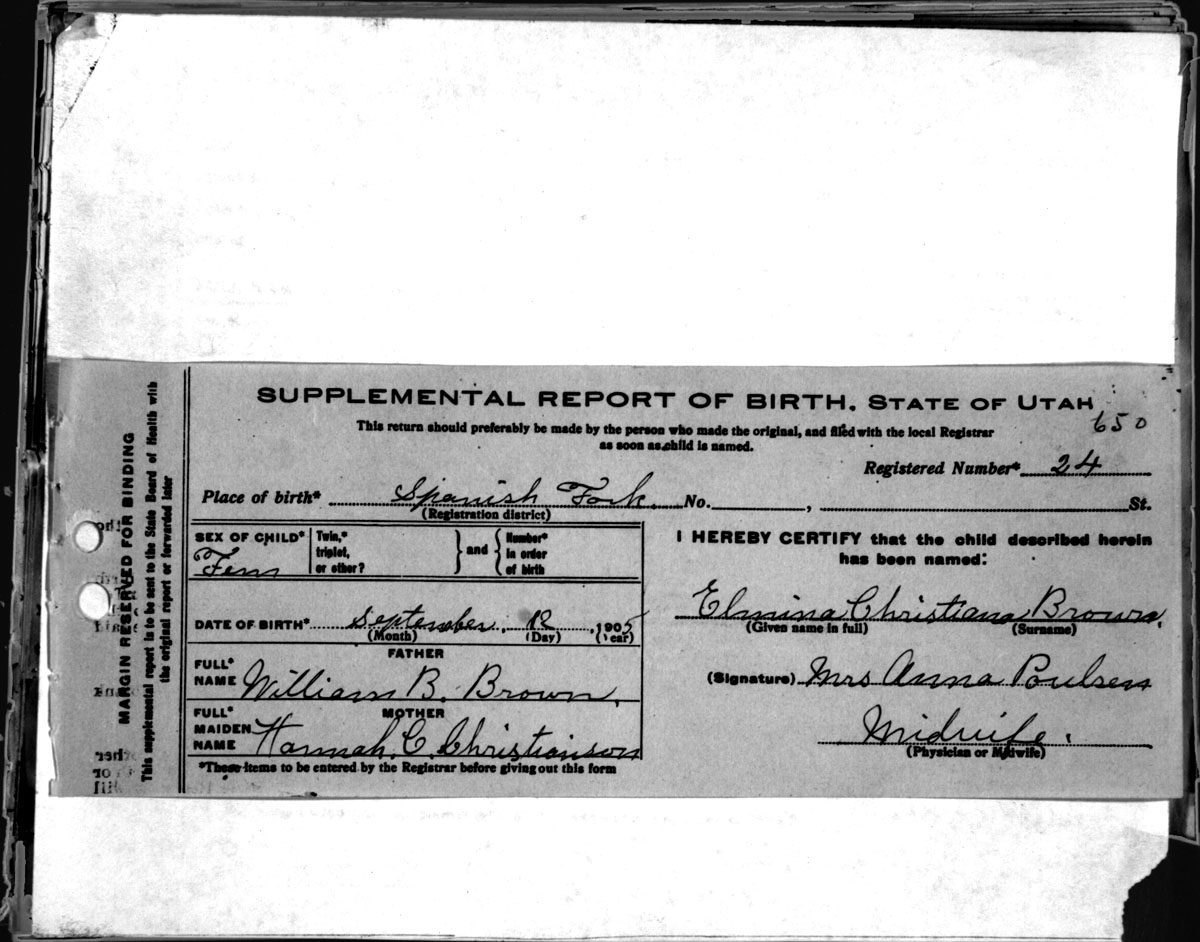 SUPPLEMENTAL REPORT OF BIRTH. STATE OF UTAH
650
This return should preferably be made by the person who made the original, and filed with the local Registrar
as soon as child is named.
Registered Number* 24
Place of birth* Spanish Fork No. , St.
(Registration district)
SEX OF CHILD*
Fem
Twin,*
triplet,
or other?
and
Number*
in order
of birth
DATE OF BIRTH* September 12, 1905
(Month) (Day) (Year)
FATHER
FULL*
NAME William B. Brown,
MOTHER
FULL*
MAIDEN
NAME Hannah C. Christianson
*These items to be entered by the Registrar before giving out this form
I HEREBY CERTIFY that the child described herein
has been named:
Elmina Christiana Brown,
(Given name in full) (Surname)
(Signature) Mrs Anna Poulsen
Midwife.
(Physician or Midwife)
MARGIN RESERVED FOR BINDING
This supplemental report is to be sent to the State Board of Health with
the original report or forwarded later